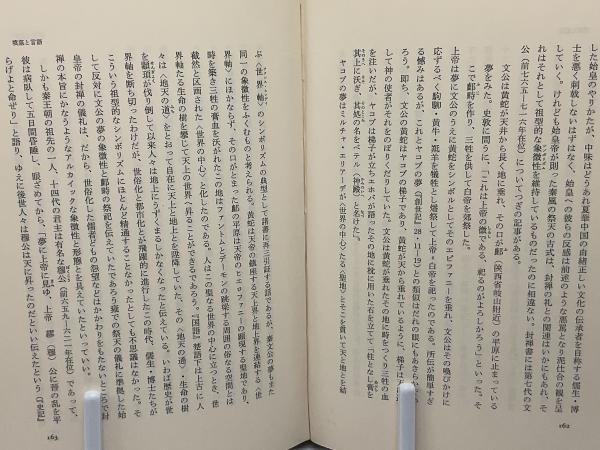 した始皇のやりかたが、中味はどうあれ夏華中国の由緒正しい文化の伝承者を自称する儒生・博
士を悪く刺戟しないはずはなく、始皇への彼らの反感は前述のような悪罵となり泥仕合の観を呈
していく。けれども始皇帝が則った秦風の祭天の古式は、封禅の礼との関連はいかにもあれ、そ
れはそれとして祖型的な象徴性を維持しているものだったのに相違ない。封禅書には第七代の文
公(前七六五―七一六年在位)についてつぎの記事がある。
文公は黄蛇が天井から長く地に垂れ、その口が鄜(陝西省岐山附近)の平原に止まっている
夢をみた。史敦に問うに、「これは上帝の徴である、祀るのがよろしかろう」といった。そ
こで鄜畤を作り、三牲を供して白帝を郊祭した。
上帝は夢に文公のうえに黄蛇をシンボルとしてそのエピファニーを垂れ、文公はその喚びかけに
応ずるべく・黄牛・羝羊を犠牲とし燔祭して上帝=白帝を祀ったのである。所伝が簡単すぎ
る憾みはあるが、これとヤコブの夢(『創世記』28・11-19)との類似はだれの眼にもあきらか
ろう。即ち、文公の黄蛇はヤコブの梯子であり、黄蛇が天から垂れているように、梯子は
して神の使者がそれをのぼりくだりしていた。文公は黄蛇が垂れたその地に畤をつくり三牲の血
を注いだが、ヤコブは梯子が立ちエホバが語ったその地に枕に用いた石を立てて「柱となし
其上に沃ぎ、其処の名をベテル(神殿)と名けた」。
ヤコブの夢はミルチャ・エリアーデが〈世界の中心〉たる〈聖地〉とそこを貫いて天と地とを結
162
墳墓と言語
ぶ〈世界軸〉のシンボリズムの典型として諸書に再三引証する話であるが、秦文公の夢もまた
同一の象徴性をふくむものと考えられる。黄蛇は天帝の臨降する天上界と地上界を連結する〈世
界軸〉にほかならず、その口がとまった鄜の平原は天帝のヒエロファニーの顕現する聖地であり、
畤を築き三牲の膏血を沃がれたこの地はファントムとデーモンの跳梁する周囲の俗なる空間とは
截然と区画された〈世界の中心〉と化したのである。人はこの聖なる世界の中心に立つとき、世
界軸たる生命の樹も攀じて天上の世界へ昇ることができるであろう。『国語』楚語下は上古に人
々は〈地天の通〉をとおって自在に天上と地上とを陞降していた、その〈地天の通〉・生命の樹
を顓頊が伐り倒して以来人々は地上にうずくまるしかなくなったと伝えている。いわば歴史が世
界軸を断ち切ったわけだが、世俗化と都市化とが飛躍的に進行したこの時代、儒生・博士たちが
こういう祖型的なシンボリズムにほとんど精通することなかったとしても不思議はなかった。そ
して反対に文公の夢の象徴性と鄜畤の祭祀を伝えていたであろう雍での祭天の儀礼に準拠した始
皇帝の封禅の儀礼は、だから、世俗化した儒者どもの怨望などはかかわりをもたないところで封
禅の本旨にかなうようなアルカイックな象徴性と形態とを具えていたといっていい。
しかも秦王朝の祖先の一人、十四代の君主は有名な穆公(前六五九―六二一年在位)であって、
彼は病臥して五日間昏睡し、眼ざめてから、「夢に上帝に見ゆ、上帝 繆(穆)公に晋の乱を平
らげよと命ぜり」と語り、ゆえに後世人々は穆公は天に昇ったのだといい伝えたという(『史記』
163